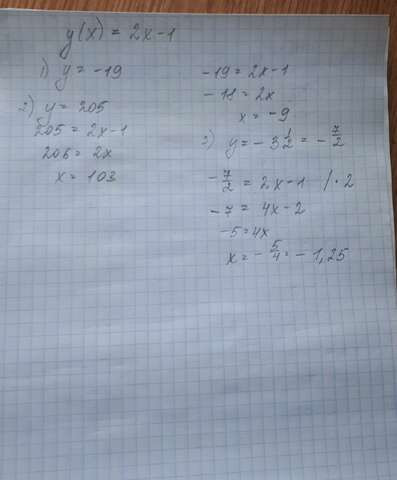 y(x) = 2x-1
1) y = -19
-19 = 2x-1
-18 = 2x
x = -9
2) y = 205
205 = 2x-1
206 = 2x
x = 103
3) y = -3 1/2 = - 7/2
- 7/2 = 2x-1 / · 2
-7 = 4x-2
-5 = 4x
x = - 5/4 = - 1,25